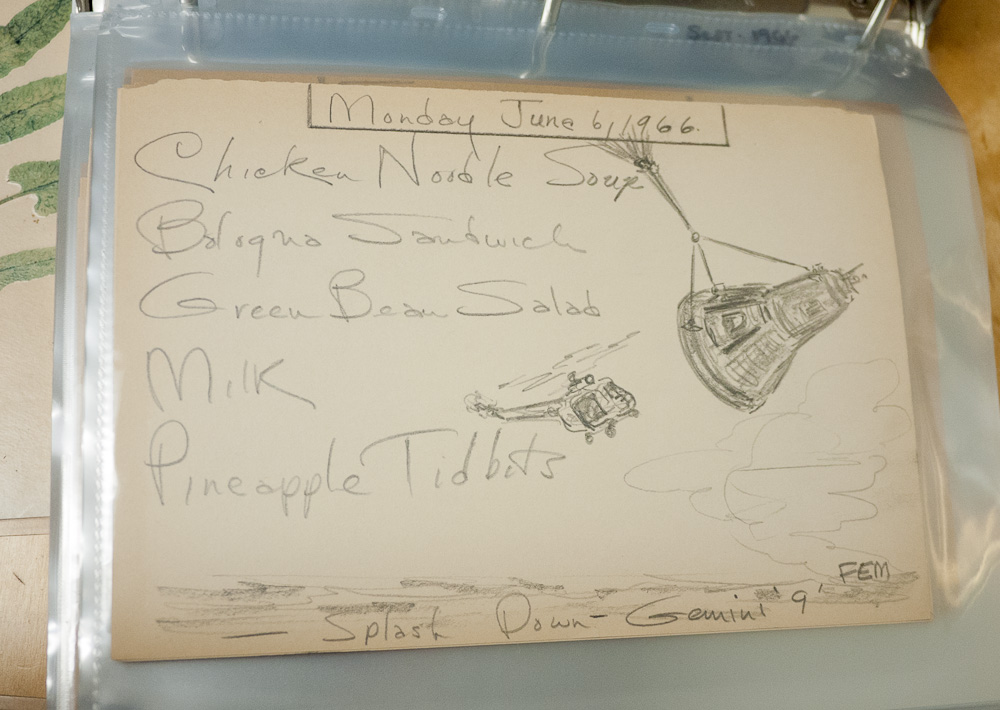 Monday June 6, 1966.
Chicken Noodle Soup
Bologna Sandwich
Green Bean Salad
Milk
Pineapple Tidbits
FEM
— Splash Down - Gemini '9'